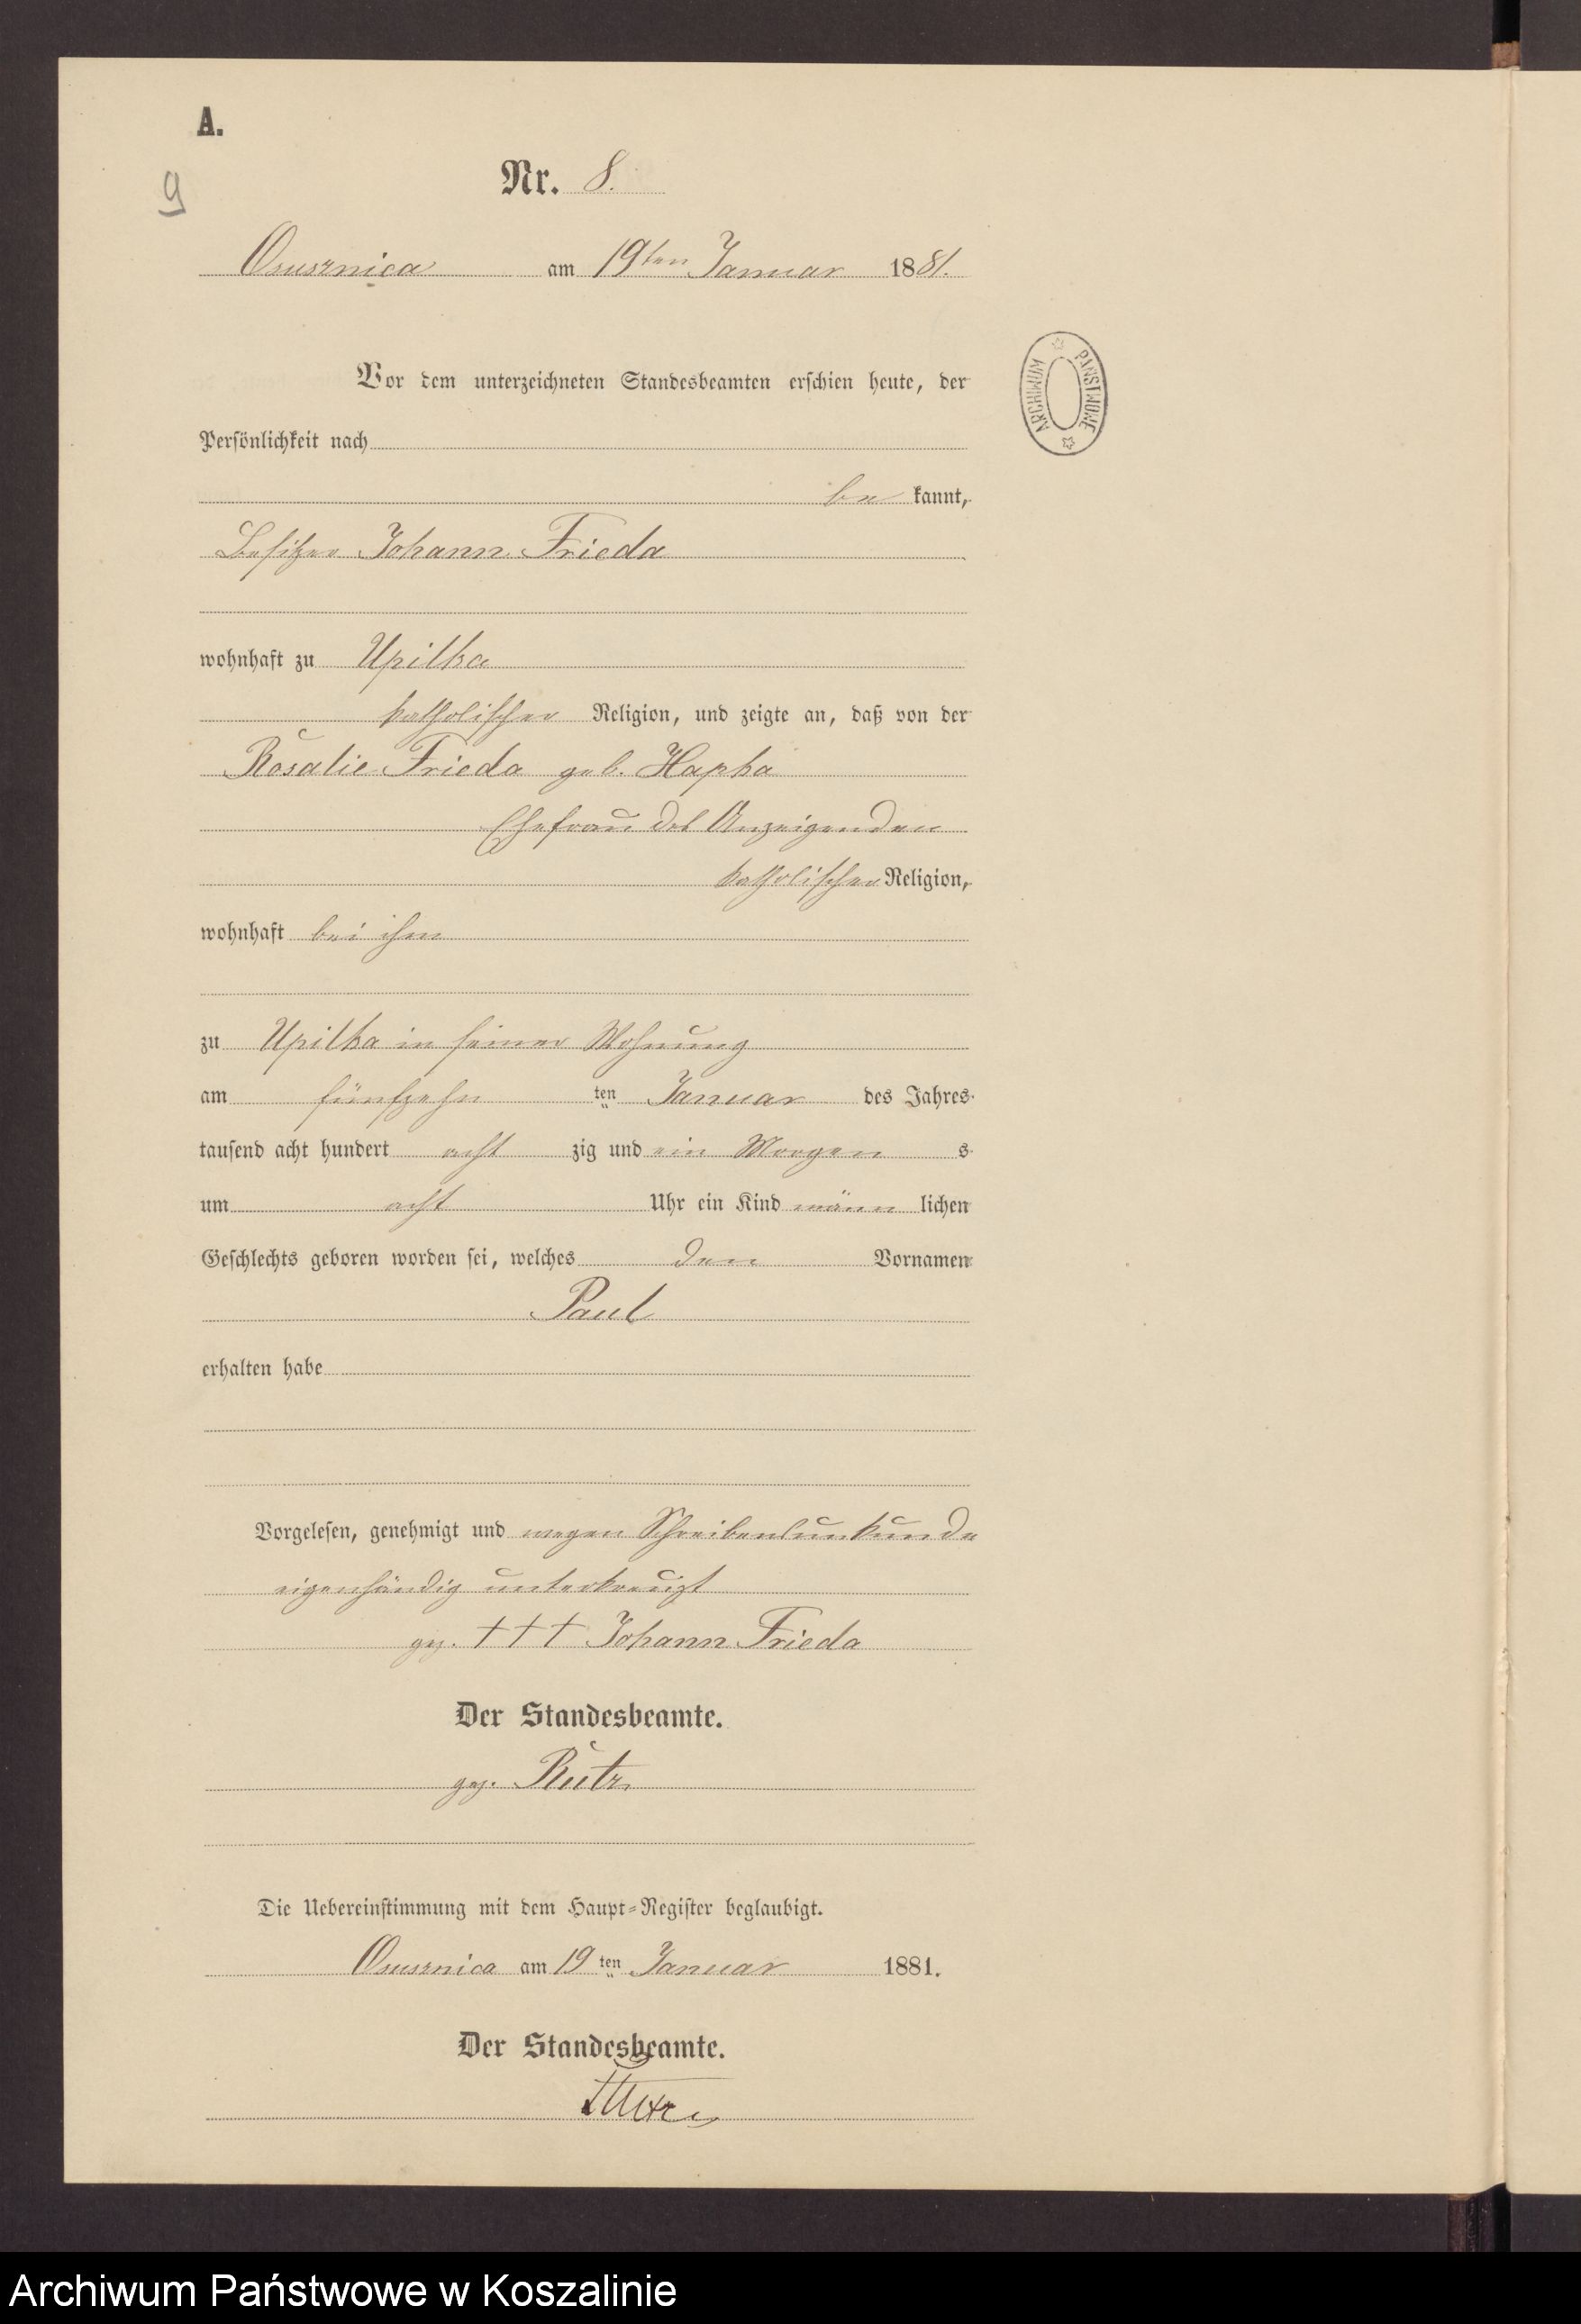 A.
9
Nr. 8.
Osusznica am 19ten Januar 1881.
Vor dem unterzeichneten Standesbeamten erschien heute, der
ARCHIWUM PAŃSTWOWE
Persönlichkeit nach
be kannt,
Besitzer Johann Frieda
wohnhaft zu Upilka
katholischer Religion, und zeigte an, daß von der
Rosalie Frieda geb. Hapka
Ehefrau des Anzeigenden
katholischer Religion,
wohnhaft bei ihm
zu Upilka in seiner Wohnung
am fünfzehn ten Januar des Jahres
tausend acht hundert acht zig und ein Morgen s
um acht Uhr ein Kind männ lichen
Geschlechts geboren worden sei, welches den Vornamen
Paul
erhalten habe
Vorgelesen, genehmigt und wegen Schreibensunkunde
eigenhändig unterkreuzt
gez. ††† Johann Frieda
Der Standesbeamte.
gez. Rutz
Die Uebereinstimmung mit dem Haupt-Register beglaubigt.
Osusznica am 19 ten Januar 1881.
Der Standesbeamte.
Archiwum Państwowe w Koszalinie